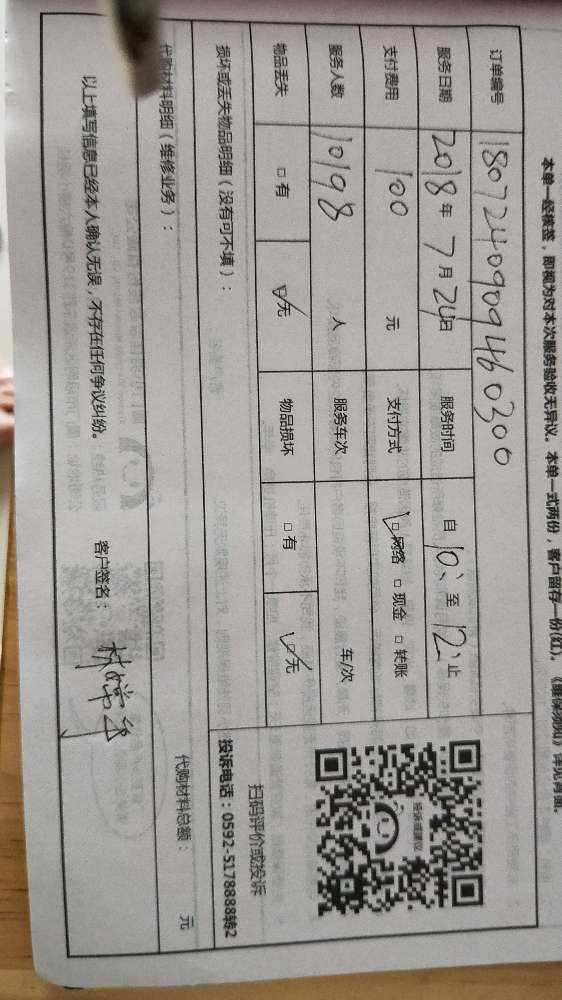 本单一经核签，即视为对本次服务验收无异议。本单一式两份，客户留存一份(红)。《维保须知》详见背面。
订单编号 1807240909460300
服务日期 2018年 7月 24日 服务时间 自 10: 至 12: 止
支付费用 100 元 支付方式 ☑网络 □现金 □转账
服务人数 10198 人 服务车次 车/次
物品丢失 □有 ☑无 物品损坏 □有 ☑无
扫码评价或投诉
投诉电话：0592-5178888转2
投诉或建议
损坏或丢失物品明细（没有可不填）：
代购材料明细（维修业务）：
代购材料总额： 元
以上填写信息已经本人确认无误，不存在任何争议纠纷。 客户签名：